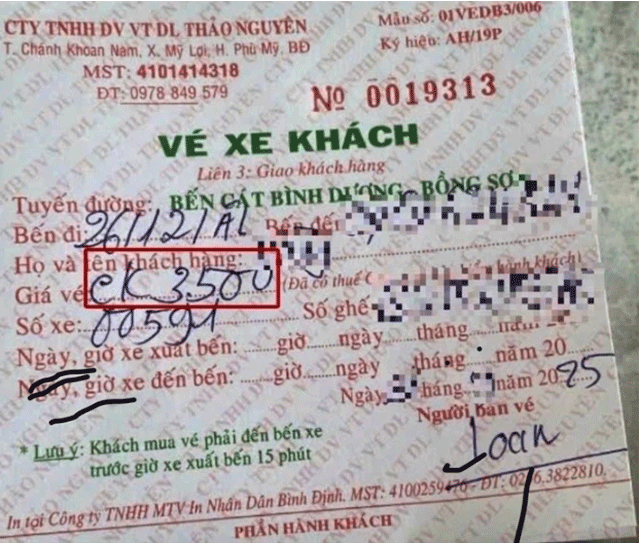 CTY TNHH ĐV VT DL THẢO NGUYÊN
T. Chánh Khoan Nam, X. Mỹ Lợi, H. Phù Mỹ, BĐ
MST: 4101414318
ĐT: 0978 849 579
Mẫu số: 01VEDB3/006
Ký hiệu: AH/19P
Nº 0019313
VÉ XE KHÁCH
Liên 3: Giao khách hàng
Tuyến đường: BẾN CÁT BÌNH DƯƠNG - BỒNG SƠN
Bến đi: 26/12/AL Bến đến:
Họ và tên khách hàng:
Giá vé: CK 3.500 (Đã có thuế hành khách)
Số xe: 00591 Số ghế:
Ngày, giờ xe xuất bến: ......giờ......ngày......tháng......năm 20
Ngày, giờ xe đến bến: ......giờ......ngày......tháng......năm 20
Ngày tháng năm 2025
Người bán vé
Loan
* Lưu ý: Khách mua vé phải đến bến xe
trước giờ xe xuất bến 15 phút
In tại Công ty TNHH MTV In Nhân Dân Bình Định. MST: 4100259476 - ĐT: 0256.3822810.
PHẦN HÀNH KHÁCH